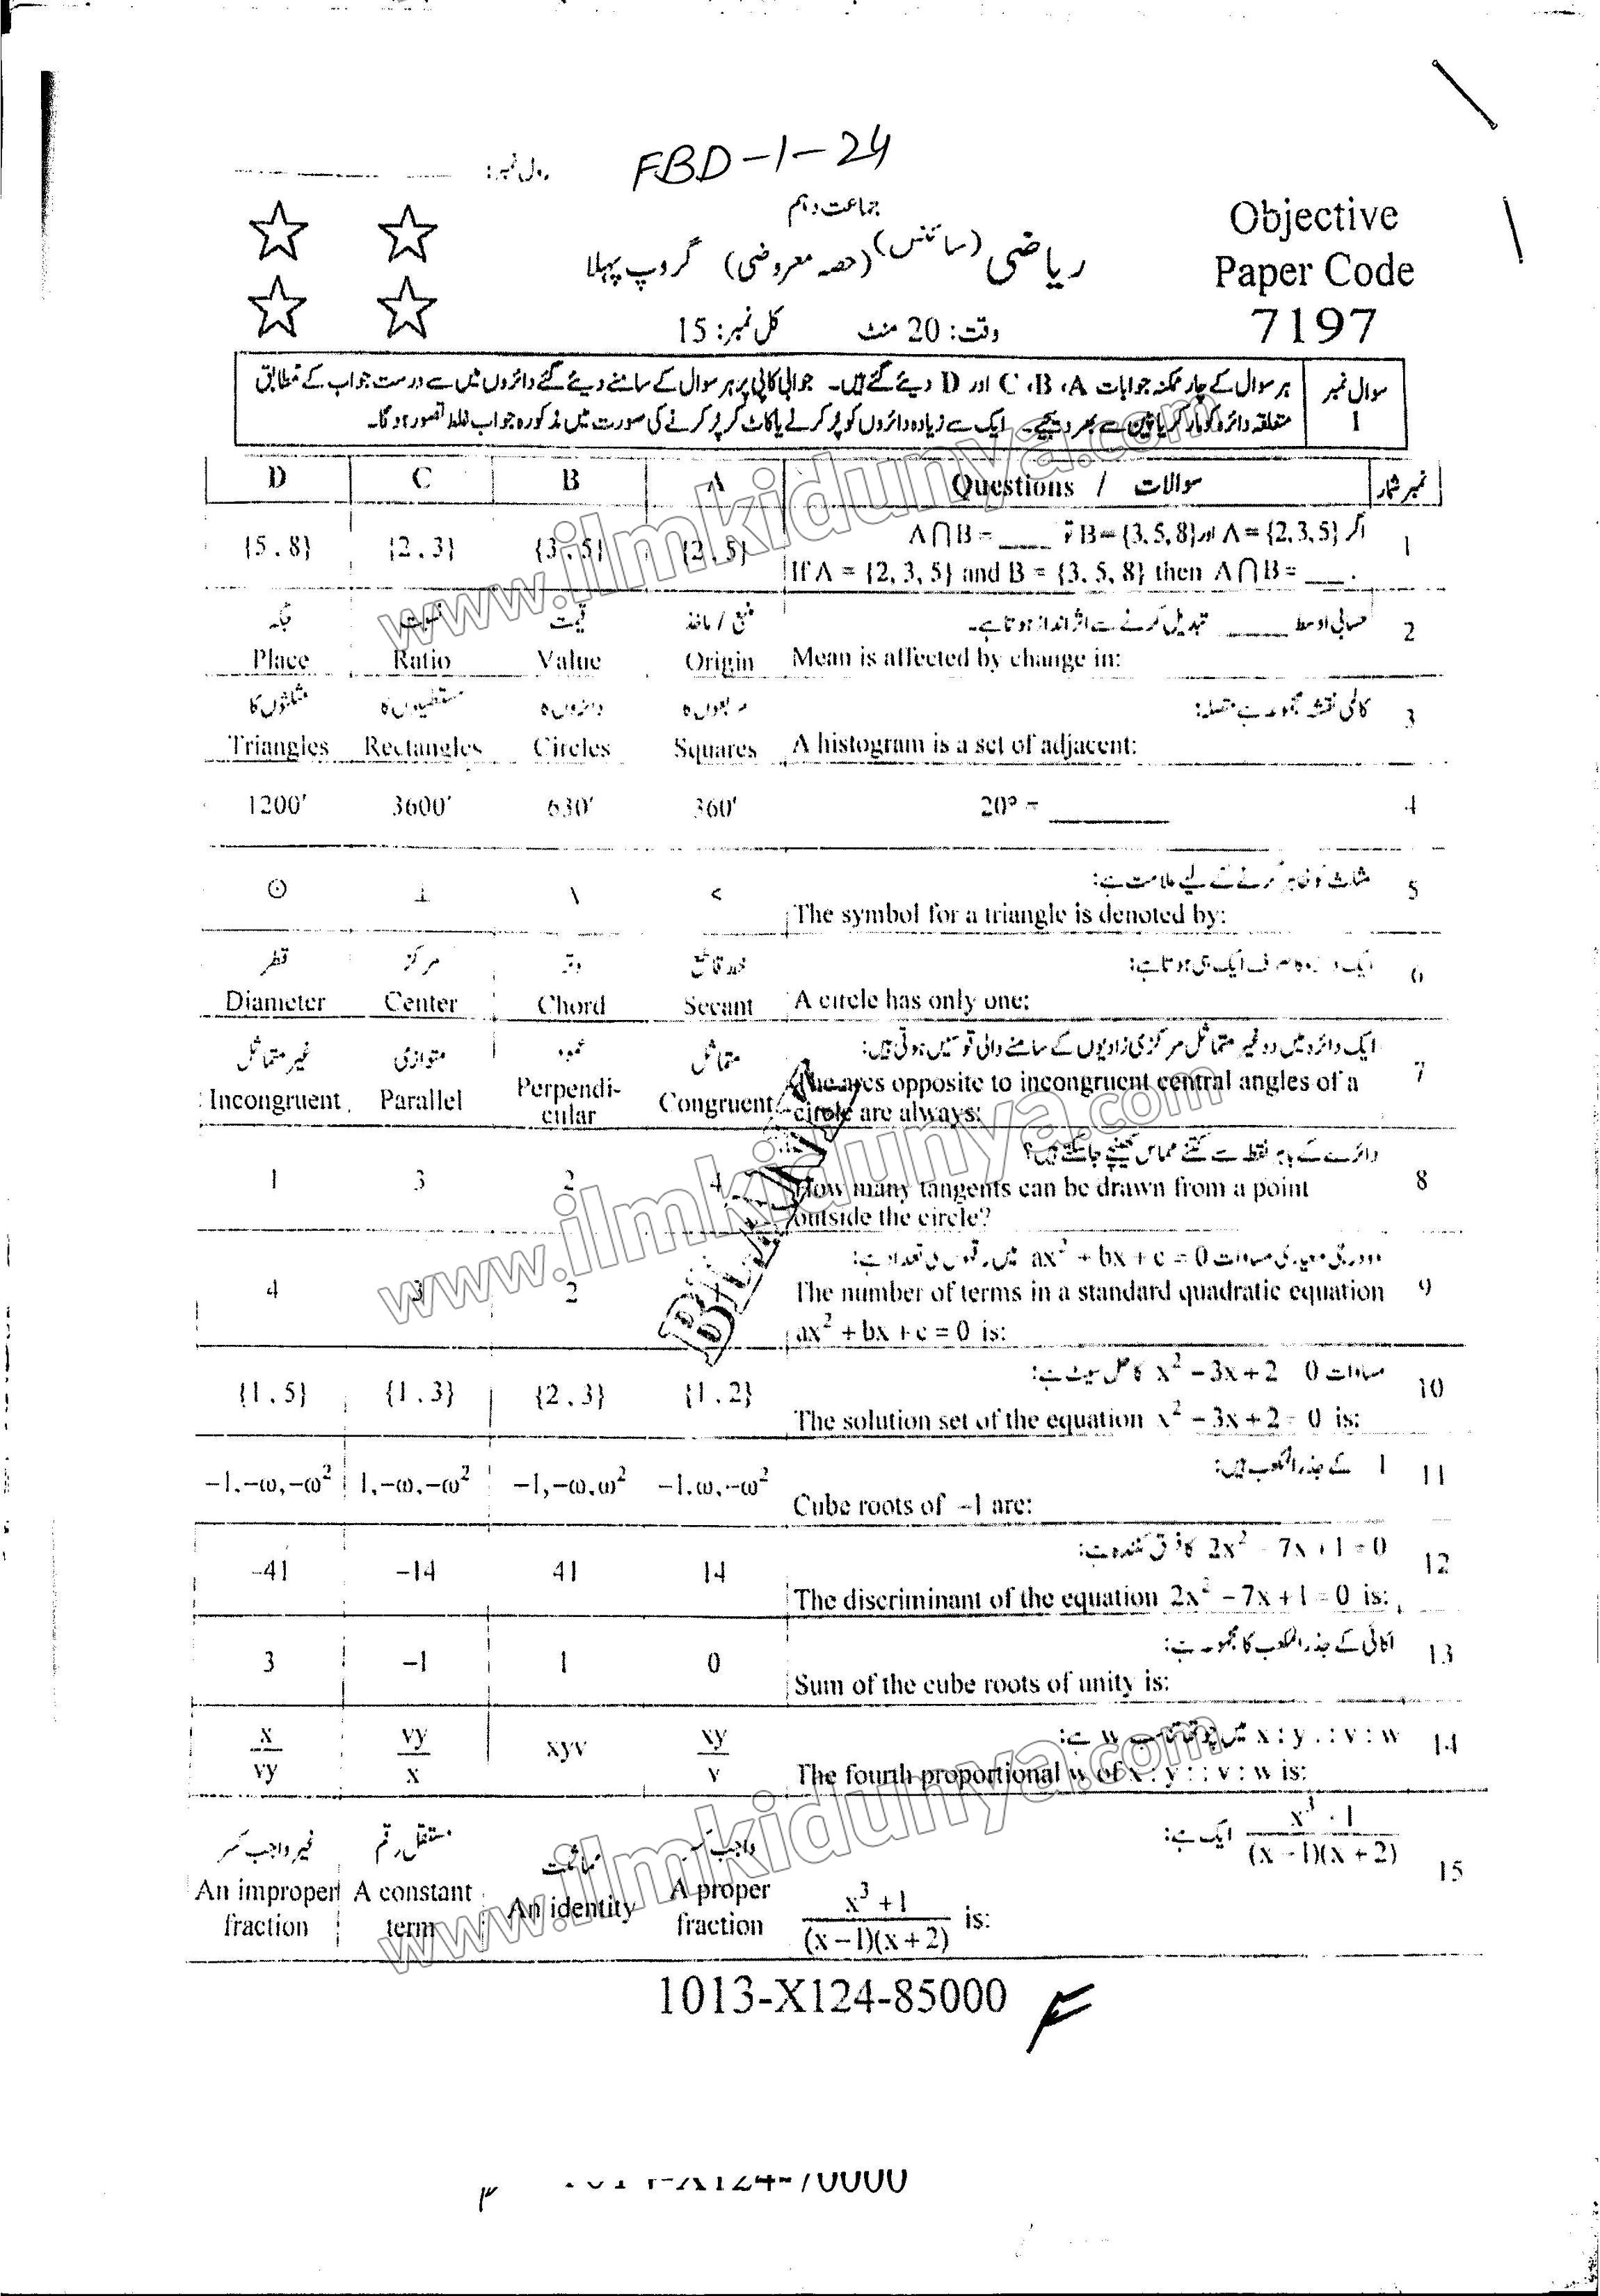 رول نمبر:
FBD-1-24
جماعت دہم
ریاضی (سائنس) (حصہ معروضی) گروپ پہلا
وقت: 20 منٹ کل نمبر: 15
Objective
Paper Code
7197
سوال نمبر 1
ہر سوال کے چار ممکنہ جوابات A، B، C اور D دیئے گئے ہیں۔ جوابی کاپی پر ہر سوال کے سامنے دیئے گئے دائروں میں سے درست جواب کے مطابق
متعلقہ دائرہ کو مارکر یا پین سے بھر دیجیے۔ ایک سے زیادہ دائروں کو پُر کرنے یا کاٹ کر پُر کرنے کی صورت میں مذکورہ جواب غلط تصور ہوگا۔
D C B A Questions / سوالات نمبر شمار
اگر A = {2, 3, 5} اور B = {3, 5, 8} تو A∩B = ____ 1
{5, 8} {2, 3} {3, 5} {2, 5}
If A = {2, 3, 5} and B = {3, 5, 8} then A∩B = ___.
حسابی اوسط ____ تبدیل کرنے سے اثر انداز ہوتا ہے۔ 2
جگہ نسبت قیمت منبع / ماخذ
Place Ratio Value Origin Mean is affected by change in:
کالمی نقشہ مجموعہ ہے متصلہ: 3
مثلثوں کا مستطیلوں کا دائروں کا مربعوں کا
Triangles Rectangles Circles Squares A histogram is a set of adjacent:
1200′ 3600′ 630′ 360′ 20° = ____ 4
مثلث کو ظاہر کرنے کے لیے علامت ہے: 5
⊙ ⊥ \ <
The symbol for a triangle is denoted by:
ایک دائرہ کا صرف ایک ہی ہوتا ہے: 6
قطر مرکز وتر خط قاطع
Diameter Center Chord Secant A circle has only one:
ایک دائرہ میں دو غیر متماثل مرکزی زاویوں کے سامنے والی قوسیں ہوتی ہیں: 7
غیر متماثل متوازی عمود متماثل
Incongruent Parallel Perpendi-cular Congruent The arcs opposite to incongruent central angles of a
circle are always:
دائرے کے باہر نقطہ سے کتنے مماس کھینچے جا سکتے ہیں؟ 8
1 3 2 4 How many tangents can be drawn from a point
outside the circle?
ax² + bx + c = 0 میں رقموں کی تعداد ہے: 9
4 3 2 The number of terms in a standard quadratic equation
ax² + bx + c = 0 is:
BILAL
مساوات x² − 3x + 2 0 کا حل سیٹ ہے: 10
{1, 5} {1, 3} {2, 3} {1, 2}
The solution set of the equation x² − 3x + 2 = 0 is:
1 کے جذر المکعب ہیں: 11
−1,−ω,−ω² 1,−ω,−ω² −1,−ω,ω² −1,ω,−ω²
Cube roots of −1 are:
2x² − 7x + 1 = 0 کا فرق کنندہ ہے: 12
−41 −14 41 14
The discriminant of the equation 2x² − 7x + 1 = 0 is:
اکائی کے جذر المکعب کا مجموعہ ہے: 13
3 −1 1 0
Sum of the cube roots of unity is:
x : y :: v : w میں چوتھا تناسب w ہے: 14
x/vy vy/x xyv xy/v
The fourth proportional w of x : y : : v : w is:
x³ 1/(x − 1)(x + 2) ایک ہے: 15
غیر واجب کسر مستقل رقم مماثلت واجب کسر
An improper fraction A constant term An identity A proper fraction x³ + 1/(x − 1)(x + 2) is:
1013-X124-85000
www.ilmkidunya.com
www.ilmkidunya.com
www.ilmkidunya.com